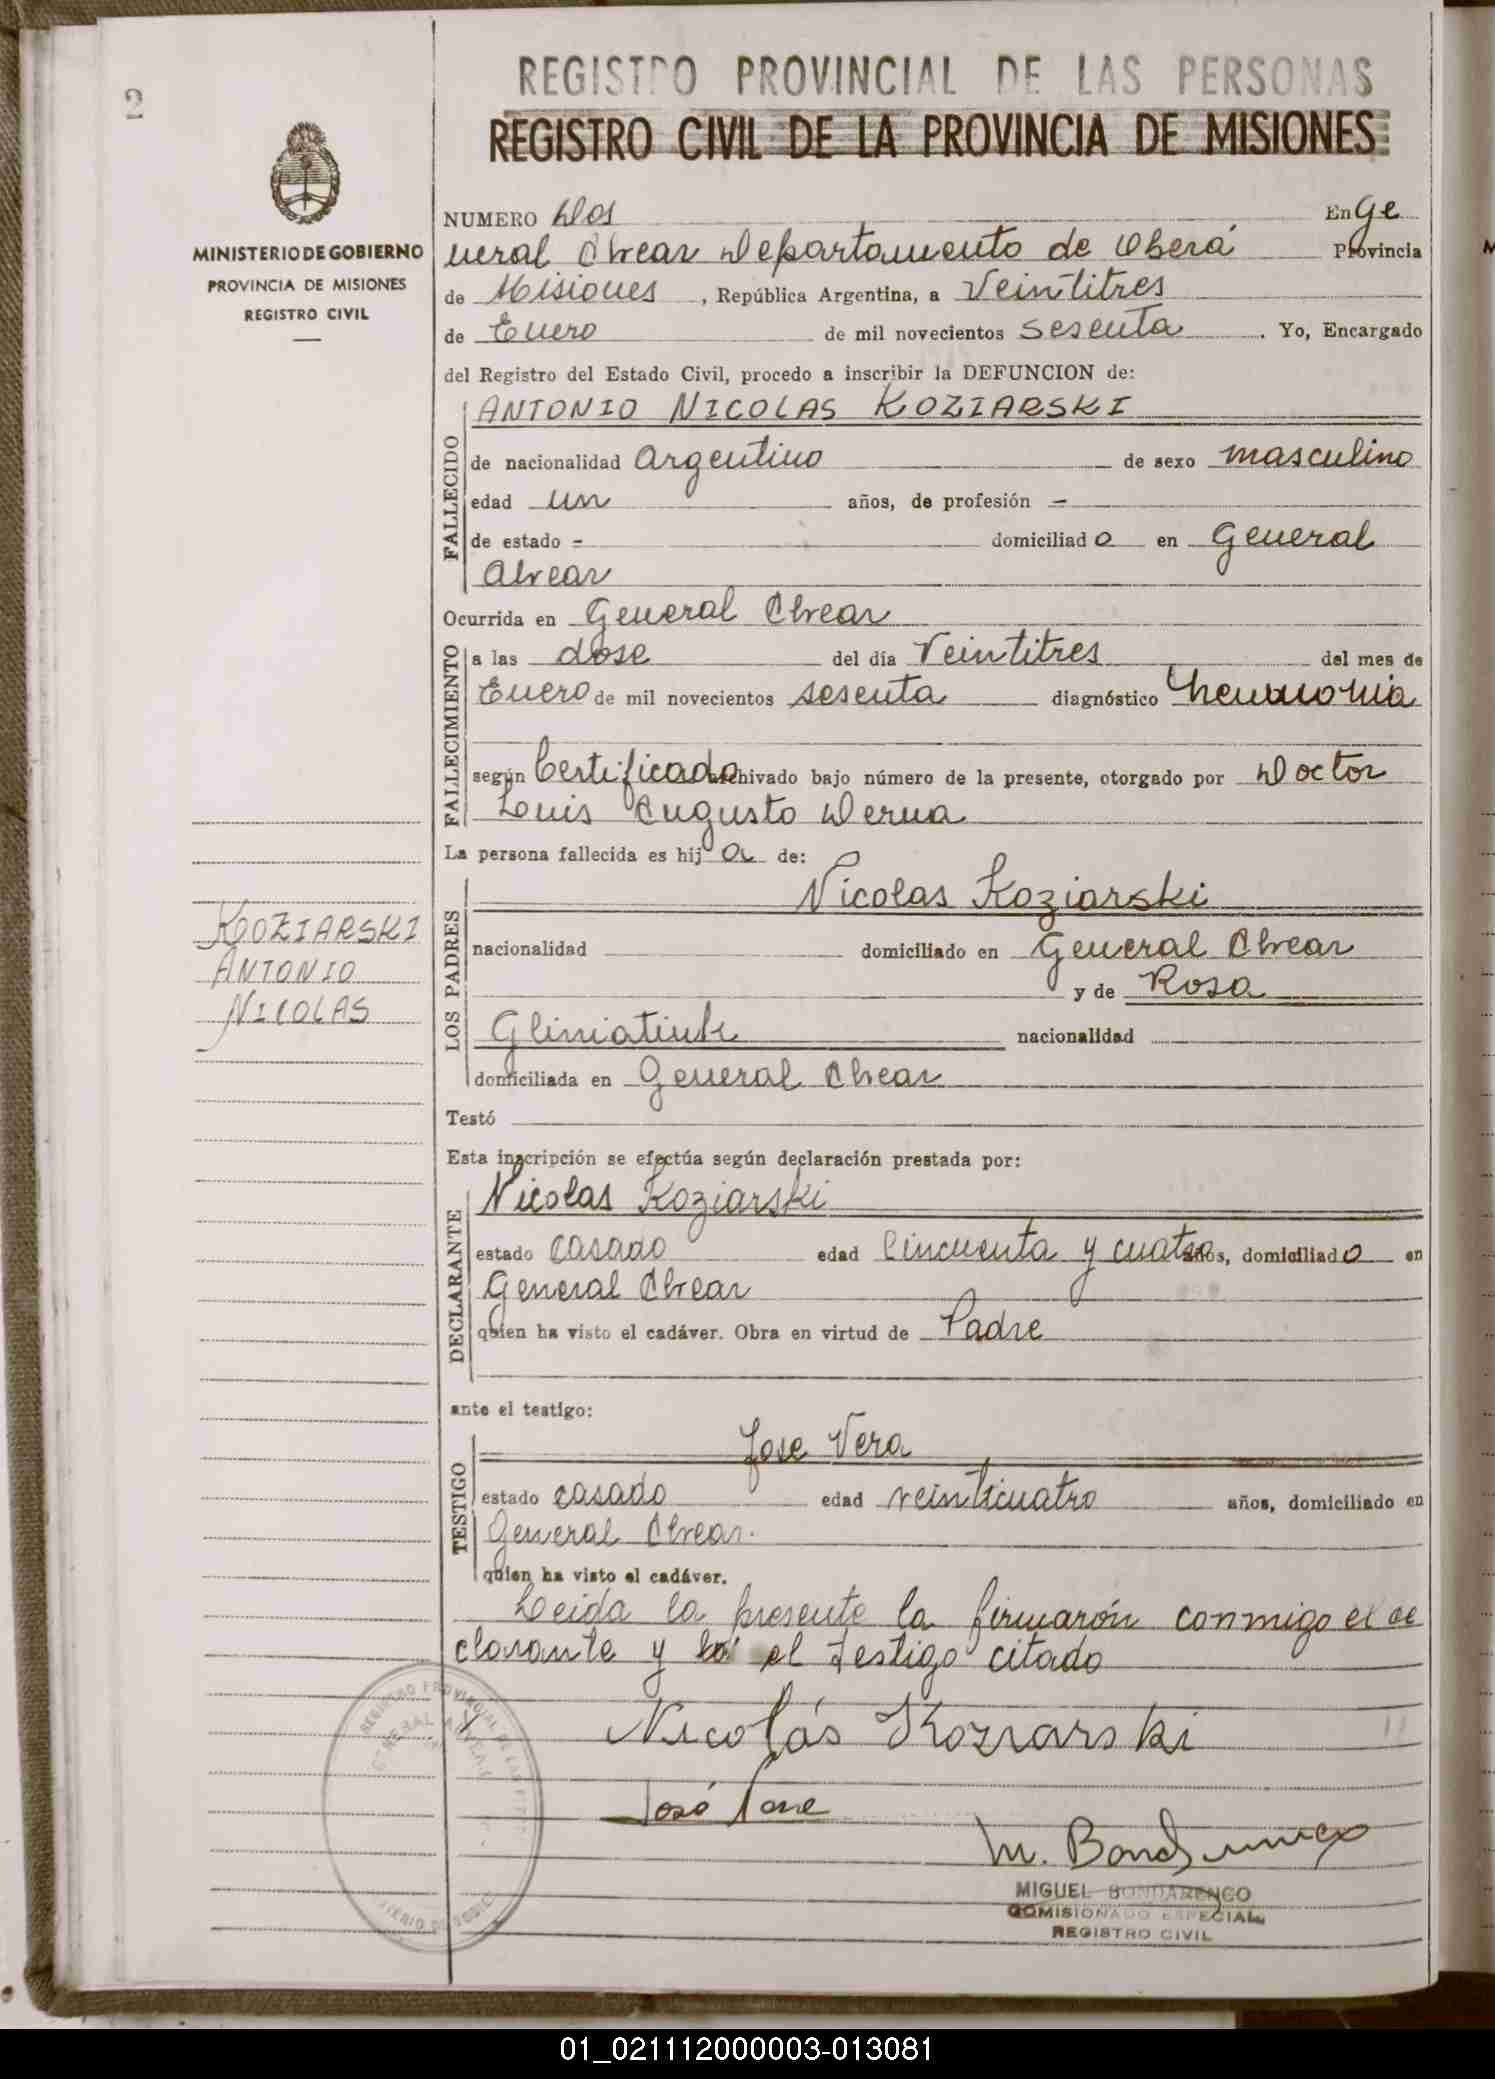 2
REGISTRO PROVINCIAL DE LAS PERSONAS
REGISTRO CIVIL DE LA PROVINCIA DE MISIONES
MINISTERIO DE GOBIERNO
PROVINCIA DE MISIONES
REGISTRO CIVIL
NUMERO Dos En Ge
neral Alvear Departamento de Oberá Provincia
de Misiones, República Argentina, a Veintitres
de Enero de mil novecientos sesenta. Yo, Encargado
del Registro del Estado Civil, procedo a inscribir la DEFUNCION de:
FALLECIDO
ANTONIO NICOLAS KOZIARSKI
de nacionalidad argentino de sexo masculino
edad un años, de profesión -
de estado - domiciliado en General
Alvear
Ocurrida en General Alvear
FALLECIMIENTO
a las dose del día Veintitres del mes de
Enero de mil novecientos sesenta diagnóstico Neumonia
según Certificado archivado bajo número de la presente, otorgado por Doctor
Louis Augusto
La persona fallecida es hijo de:
LOS PADRES
Nicolas Koziarski
nacionalidad domiciliado en General Alvear
y de Rosa
Gliniatiuk nacionalidad
domiciliada en General Alvear
KOZIARSKI
ANTONIO
NICOLAS
Testó
Esta inscripción se efectúa según declaración prestada por:
DECLARANTE
Nicolas Koziarski
estado casado edad Cincuenta y cuatro años, domiciliado en
General Alvear
quien ha visto el cadáver. Obra en virtud de Padre
ante el testigo:
TESTIGO
Jose Vera
estado casado edad veinticuatro años, domiciliado en
General Alvear.
quien ha visto el cadáver.
Leida la presente la firmarón conmigo el de
clarante y el testigo citado
Nicolás Koziarski
José
M.
MIGUEL BONDARENCO
COMISIONADO ESPECIAL
REGISTRO CIVIL
REGISTRO PROVINCIAL DE LAS
GENERAL ALVEAR
01_021112000003-013081